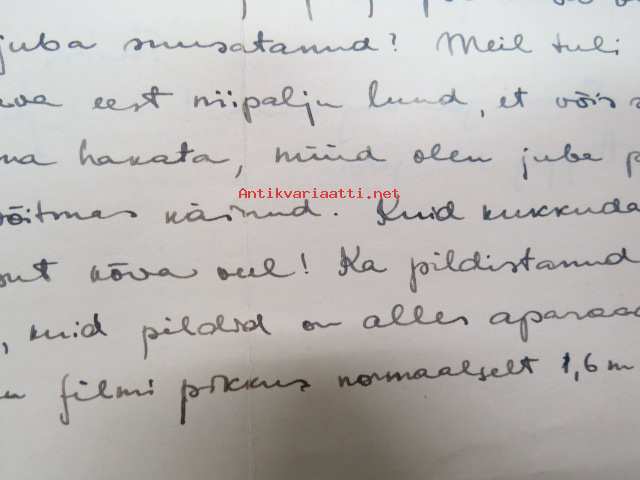 juba suusatanud? Meil tuli
eest niipalju lund, et võis
hakata, nüüd olen juba
Antikvariaatti.net
sõitmas käinud. Kuid kukkuda
kõva veel! Ka pildistanud
, kuid pildid on alles aparaa
filmi pikkus normaalselt 1,6 m